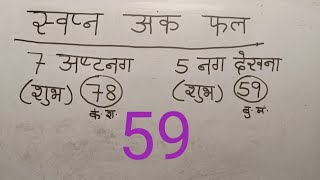 स्वप्न अंक फल
7 अष्टनग 5 नग देखना
(शुभ) 78 (शुभ) 59
के.श. बु.मं.
59